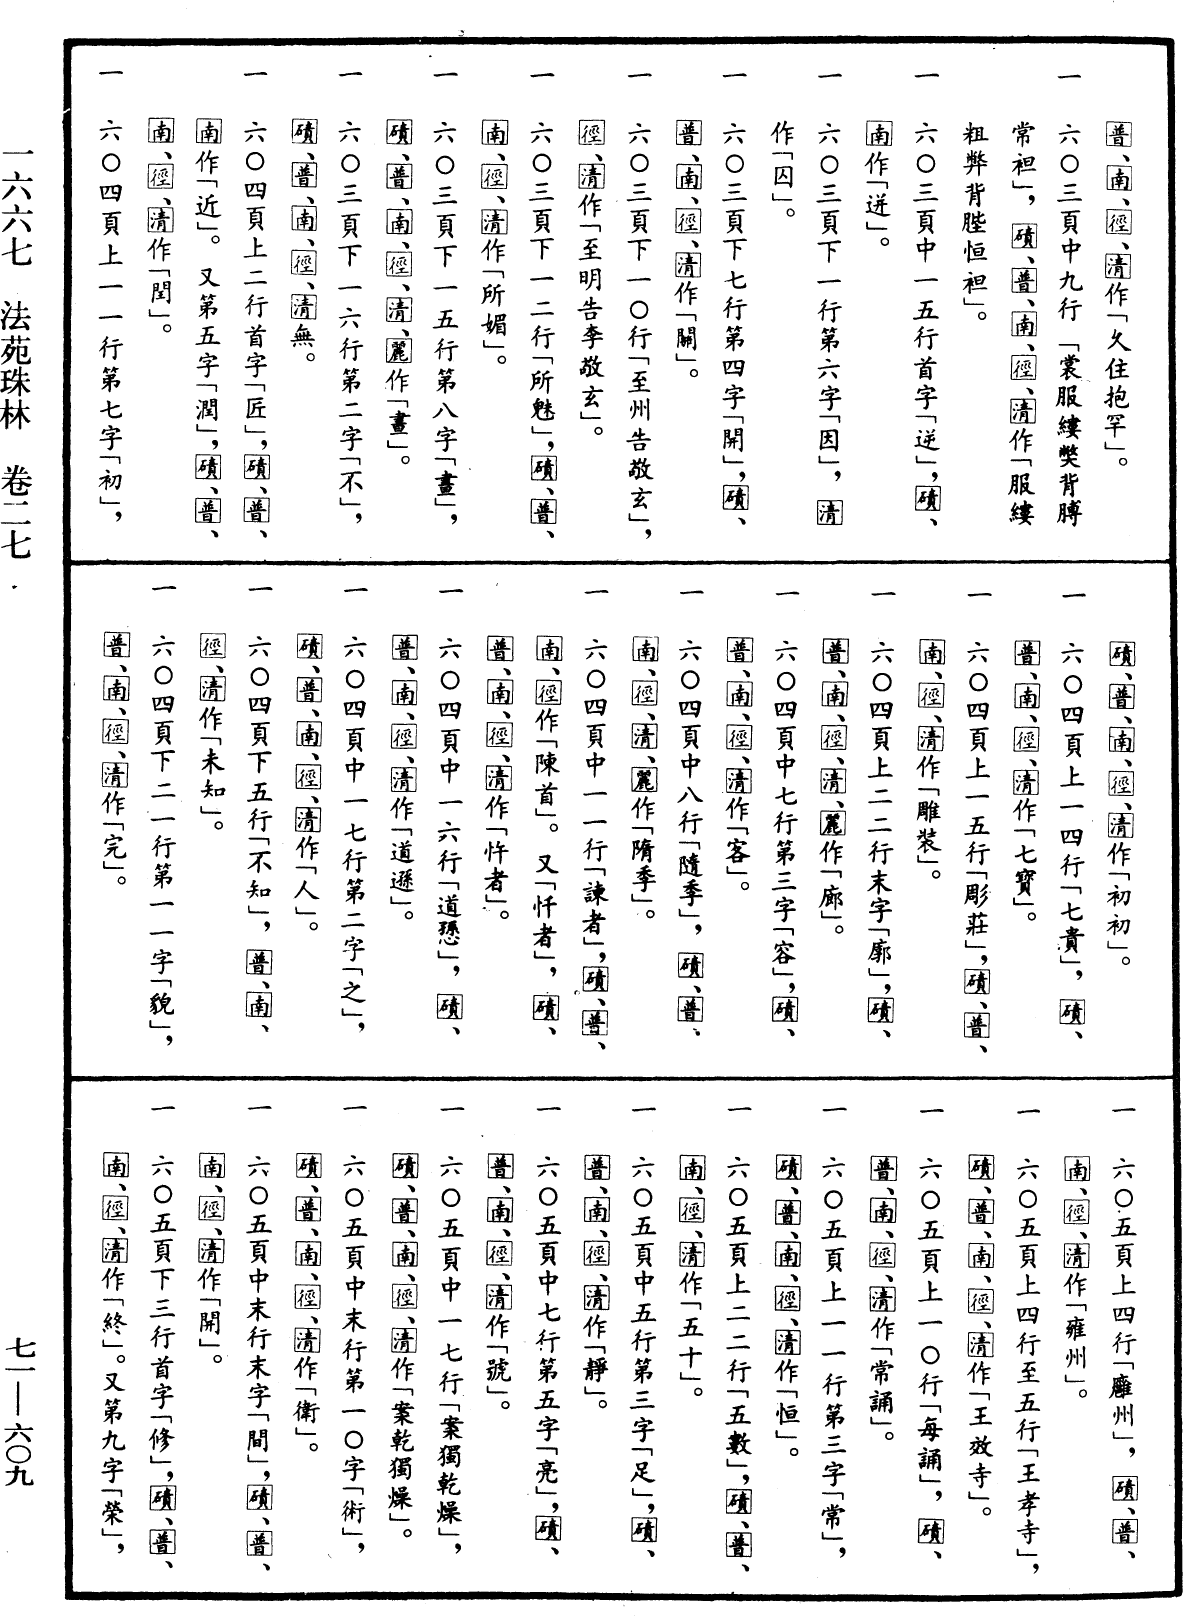 普、南、徑、清作「久住抱罕」。
一 六〇三頁中九行「裳服縷獘背膊
常袒」，磧、普、南、徑、清作「服縷
粗弊背䏶恒袒」。
一 六〇三頁中一五行首字「逆」，磧、
南作「迸」。
一 六〇三頁下一行第六字「因」，清
作「囚」。
一 六〇三頁下七行第四字「開」，磧、
普、南、徑、清作「關」。
一 六〇三頁下一〇行「至州告敬玄」，
徑、清作「至明告李敬玄」。
一 六〇三頁下一二行「所魅」，磧、普、
南、徑、清作「所媚」。
一 六〇三頁下一五行第八字「畫」，
磧、普、南、徑、清、麗作「畫」。
一 六〇三頁下一六行第二字「不」，
磧、普、南、徑、清無。
一 六〇四頁上二行首字「匠」，磧、普、
南作「近」。又第五字「潤」，磧、普、
南、徑、清作「閏」。
一 六〇四頁上一一行第七字「初」，
磧、普、南、徑、清作「初初」。
一 六〇四頁上一四行「七貴」，磧、
普、南、徑、清作「七寶」。
一 六〇四頁上一五行「彫莊」，磧、普、
南、徑、清作「雕裝」。
一 六〇四頁上二二行末字「廓」，磧、
普、南、徑、清、麗作「廊」。
一 六〇四頁中七行第三字「容」，磧、
普、南、徑、清作「客」。
一 六〇四頁中八行「隨季」，磧、普、
南、徑、清、麗作「隋季」。
一 六〇四頁中一一行「諫者」，磧、普、
南、徑作「陳首」。又「忏者」，磧、
普、南、徑、清作「忤者」。
一 六〇四頁中一六行「道愻」，磧、
普、南、徑、清作「道遜」。
一 六〇四頁中一七行第二字「之」，
磧、普、南、徑、清作「人」。
一 六〇四頁下五行「不知」，普、南、
徑、清作「未知」。
一 六〇四頁下二一行第一一字「貌」，
普、南、徑、清作「完」。
一 六〇五頁上四行「廱州」，磧、普、
南、徑、清作「雍州」。
一 六〇五頁上四行至五行「王孝寺」，
磧、普、南、徑、清作「王效寺」。
一 六〇五頁上一〇行「每誦」，磧、
普、南、徑、清作「常誦」。
一 六〇五頁上一一行第三字「常」，
磧、普、南、徑、清作「恒」。
一 六〇五頁上二二行「五數」，磧、普、
南、徑、清作「五十」。
一 六〇五頁中五行第三字「足」，磧、
普、南、徑、清作「靜」。
一 六〇五頁中七行第五字「亮」，磧、
普、南、徑、清作「號」。
一 六〇五頁中一七行「案獨乾燥」，
磧、普、南、徑、清作「案乾獨燥」。
一 六〇五頁中末行第一〇字「術」，
磧、普、南、徑、清作「衛」。
一 六〇五頁中末行末字「間」，磧、普、
南、徑、清作「開」。
一 六〇五頁下三行首字「修」，磧、普、
南、徑、清作「終」。又第九字「榮」，
一六六七 法苑珠林 卷二七
七一—六〇九